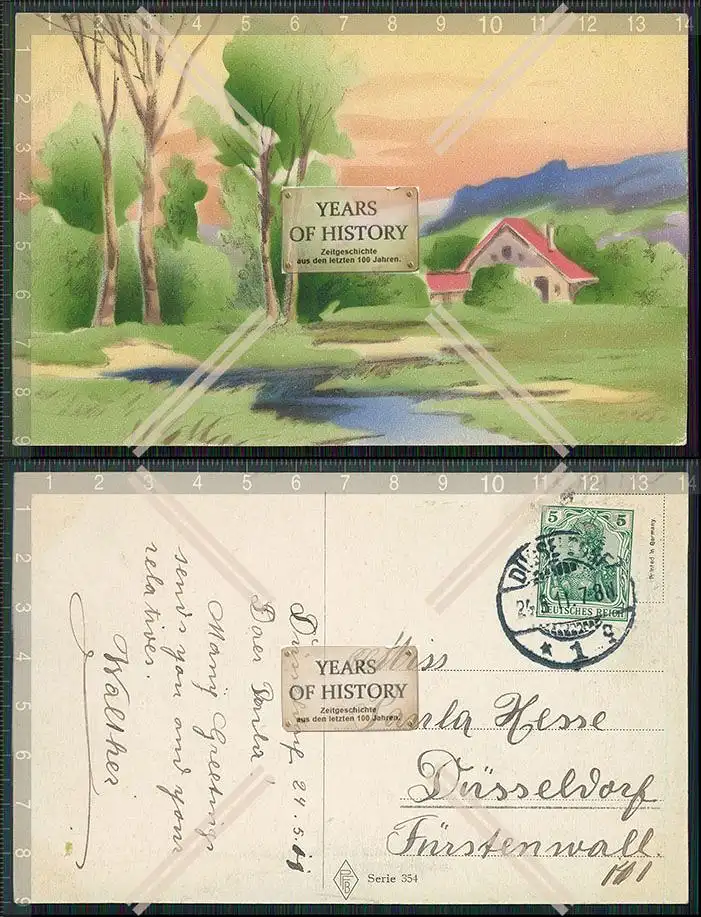 1 2 3 4 5 6 7 8 9 10 11 12 13 14
2
3
4
5
6
7
8
9
YEARS
OF HISTORY
Zeitgeschichte
aus den letzten 100 Jahren.
1 2 3 4 5 6 7 8 9 10 11 12 13 14
2
3
4
5
6
7
8
Düsseldorf 24.5.
Daer Paula!
Many Greetings
sends you and your
relatives.
Walther
5 5
DEUTSCHES REICH
Printed in Germany
DÜSSELDORF
24.5.11. 7-8N
* 1 g
Miss
Paula Hesse
Düsseldorf
Fürstenwall.
YEARS
OF HISTORY
Zeitgeschichte
aus den letzten 100 Jahren.
Serie 354